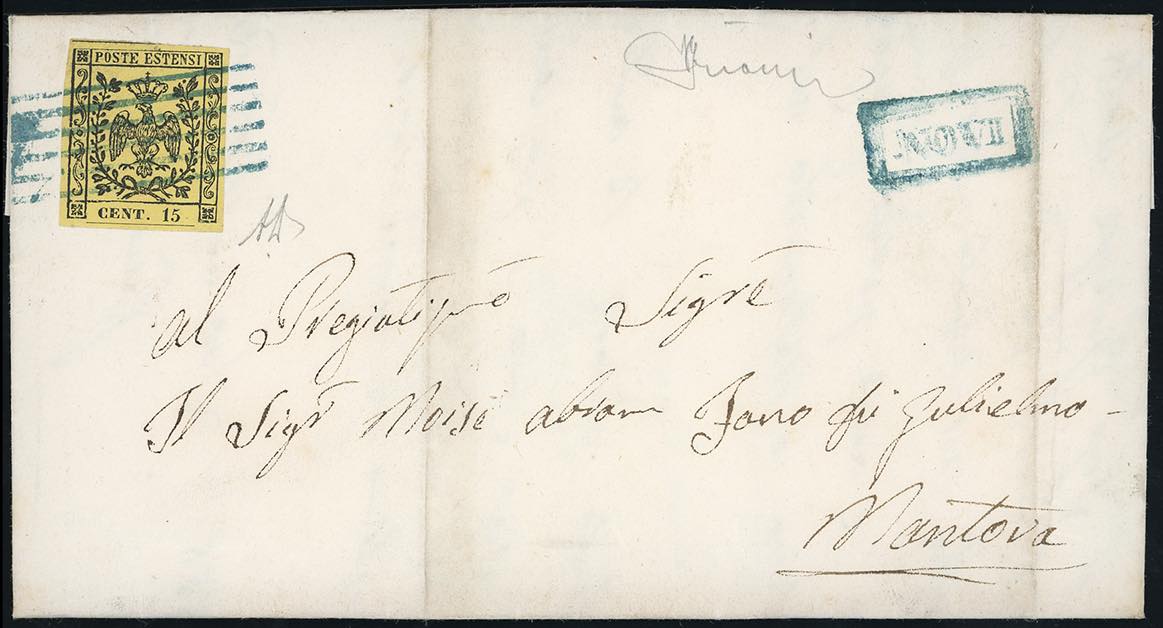 POSTE ESTENSI
CENT. 15
NOVI
al Pregiatissmo Sigre
Il Sigr Moisè abram Fano di Zulielmo
Mantova